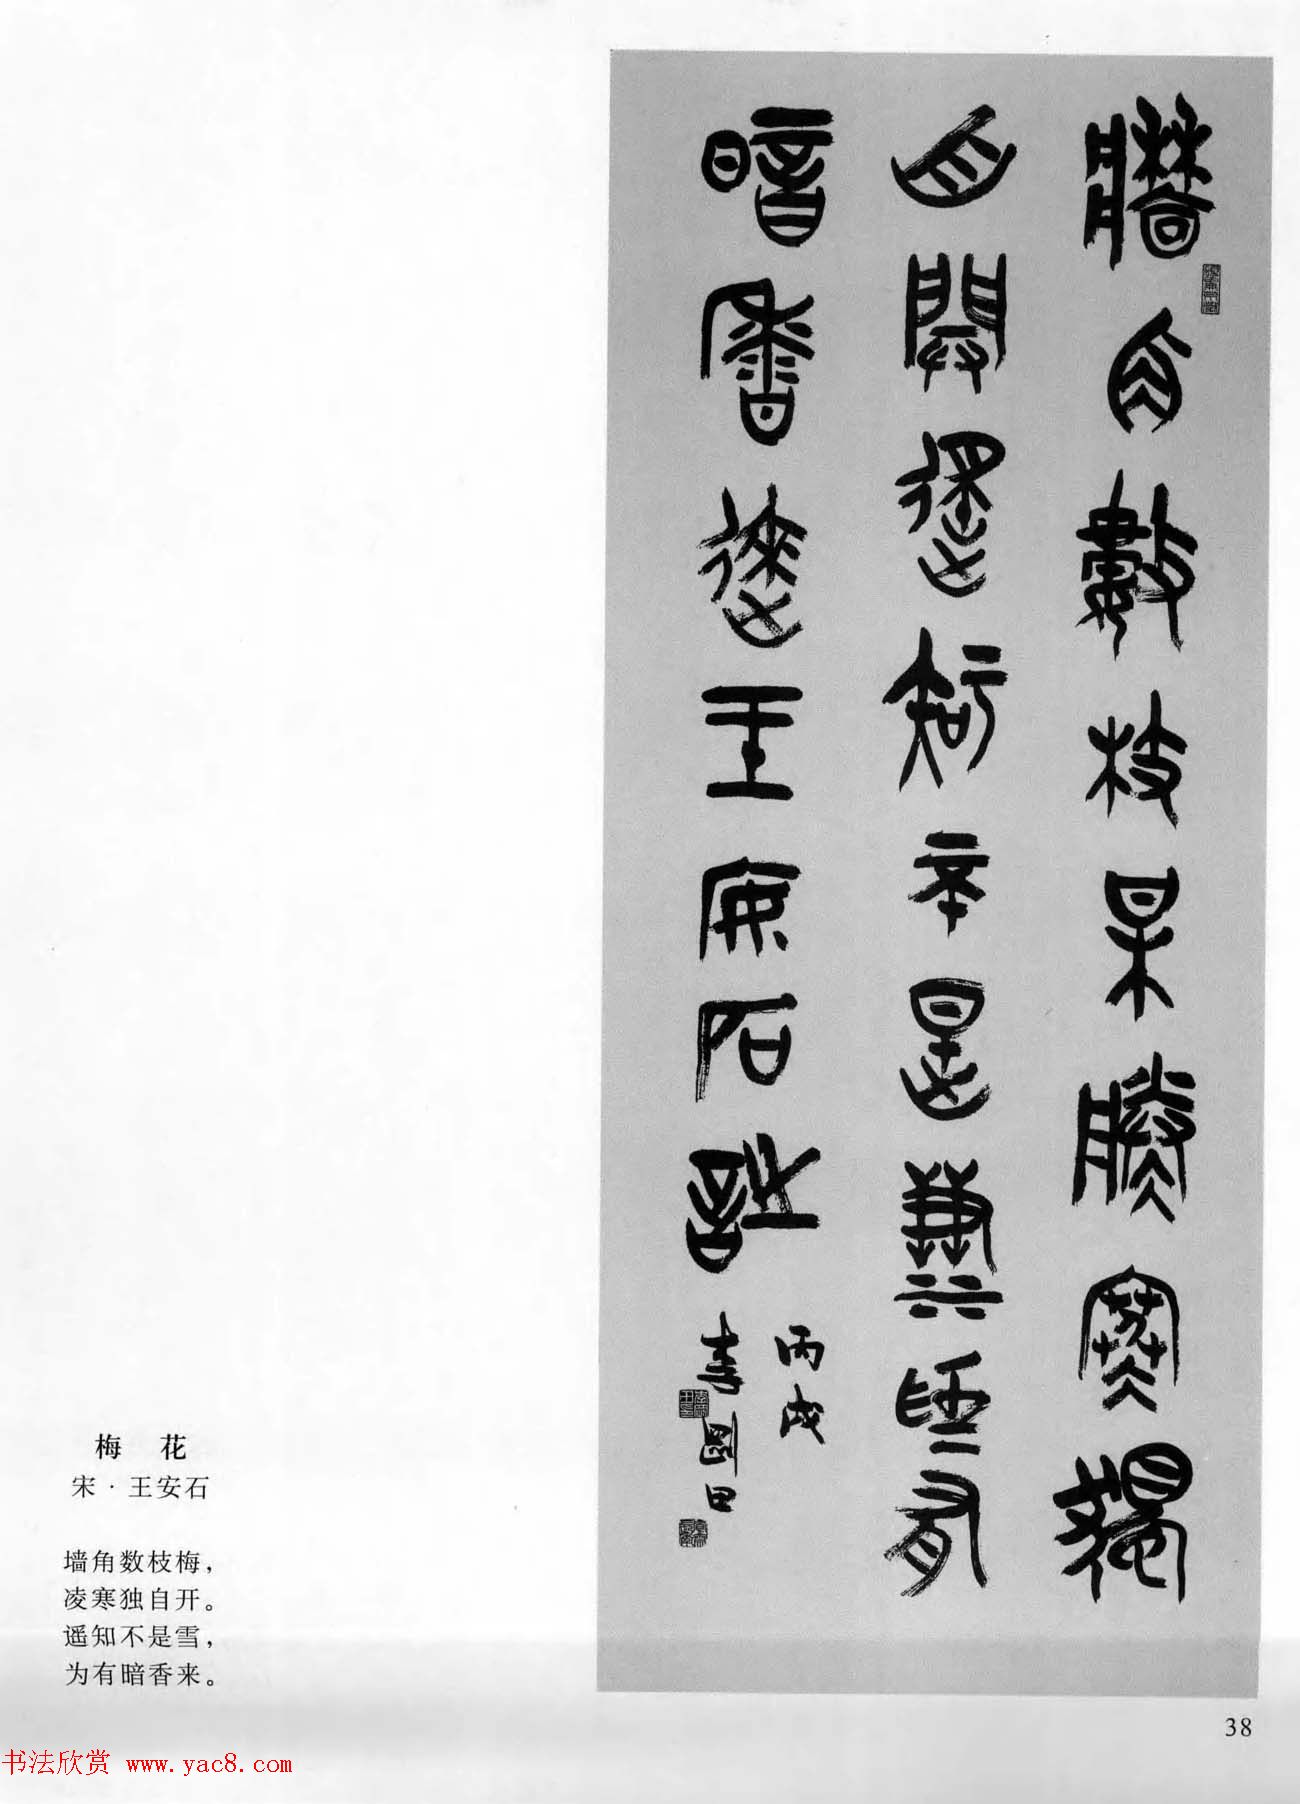 牆角數枝梅凌寒獨
自開遙知不是雪為有
暗香來王安石詩
丙戌
李剛田
梅 花
宋·王安石
墙角数枝梅，
凌寒独自开。
遥知不是雪，
为有暗香来。
38
书法欣赏 www.yac8.com